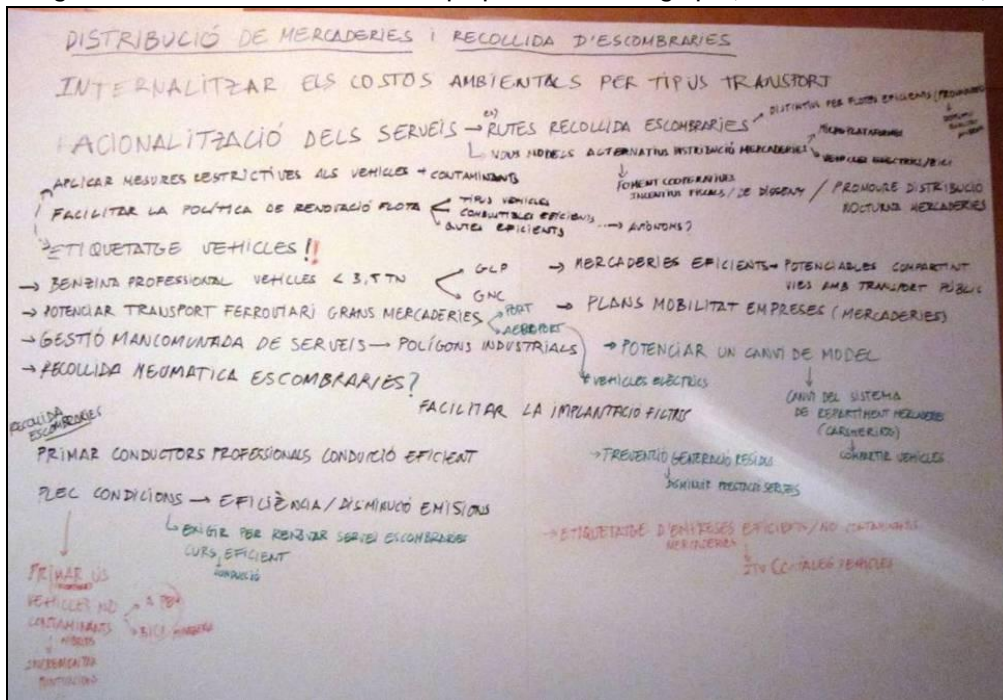 DISTRIBUCIÓ DE MERCADERIES i RECOLLIDA D'ESCOMBRARIES
INTERNALITZAR ELS COSTOS AMBIENTALS PER TIPUS TRANSPORT
RACIONALITZACIÓ DELS SERVEIS → RUTES RECOLLIDA ESCOMBRARIES
DISTINTIU PER FLOTES EFICIENTS
NOUS MODELS ALTERNATIUS DISTRIBUCIÓ MERCADERIES
MICROPLATAFORMES
VEHICLES ELÈCTRICS/BICI
FOMENT COOPERATIVES
INCENTIUS FISCALS / DE DISSENY / PROMOURE DISTRIBUCIÓ
NOCTURNA MERCADERIES
APLICAR MESURES RESTRICTIVES ALS VEHICLES + CONTAMINANTS
FACILITAR LA POLÍTICA DE RENOVACIÓ FLOTA
TIPUS VEHICLES
COMBUSTIBLES EFICIENTS
RUTES EFICIENTS ---→ AUTÒNOMS?
ETIQUETATGE VEHICLES!!
→ BENZINA PROFESSIONAL VEHICLES < 3,5 TN
GLP
GNC
→ MERCADERIES EFICIENTS → POTENCIARLES COMPARTINT
VIES AMB TRANSPORT PÚBLIC
→ POTENCIAR TRANSPORT FERROVIARI GRANS MERCADERIES
PORT
AEROPORT
→ PLANS MOBILITAT EMPRESES (MERCADERIES)
→ GESTIÓ MANCOMUNADA DE SERVEIS — POLÍGONS INDUSTRIALS
VEHICLES ELÈCTRICS
→ POTENCIAR UN CANVI DE MODEL
CANVI DEL SISTEMA
DE REPARTIMENT MERCADERIES
COMPARTIR VEHICLES
→ RECOLLIDA NEUMATICA ESCOMBRARIES?
FACILITAR LA IMPLANTACIÓ FILTRES
RECOLLIDA
ESCOMBRARIES
PRIMAR CONDUCTORS PROFESSIONALS CONDUCCIÓ EFICIENT
→ PREVENCIÓ GENERACIÓ RESIDUS
DISMINUIR PRESTACIÓ SERVEIS
PLEC CONDICIONS → EFICIÈNCIA/DISMINUCIÓ EMISIONS
EXIGIR PER RENOVAR SERVEI ESCOMBRARIES
CURS EFICIENT
CONDUCCIÓ
→ ETIQUETATGE D'EMPRESES EFICIENTS/NO CONTAMINANTS
MERCADERIES
ITV
VEHICLES
PRIMAR ÚS
VEHICLES NO
CONTAMINANTS
A PEU
BICI
INCREMENTAR